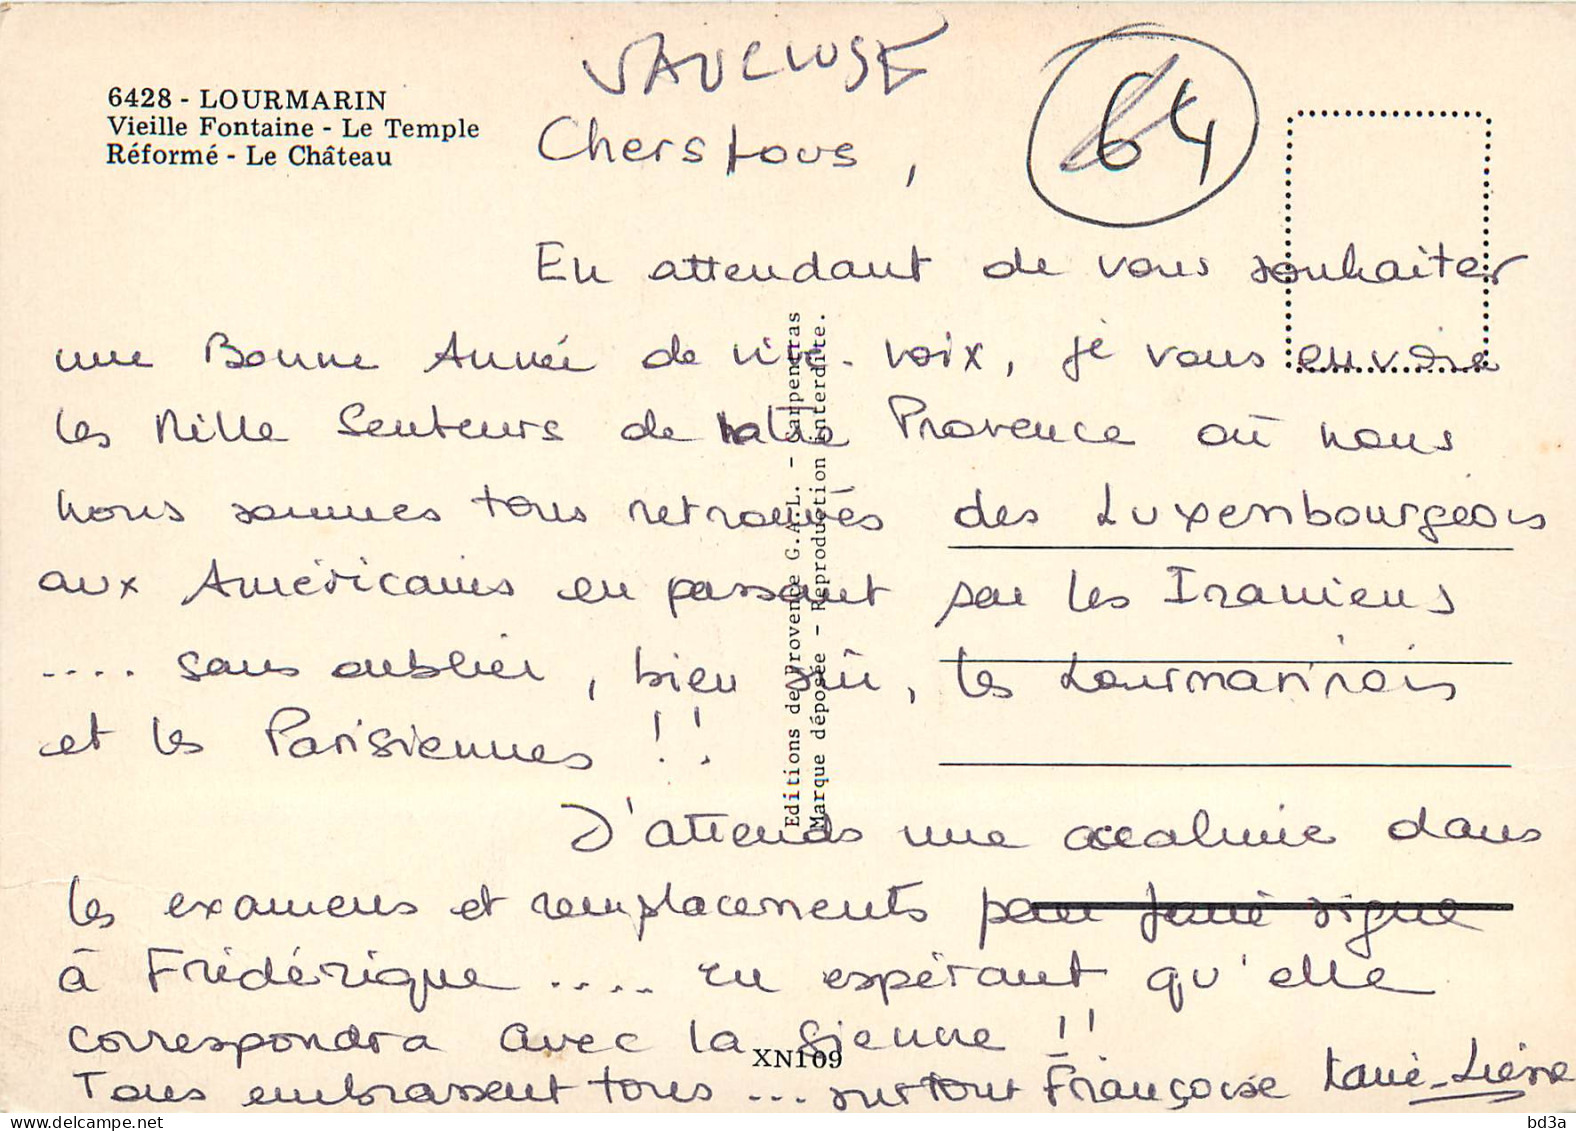 6428 - LOURMARIN
Vieille Fontaine - Le Temple
Réformé - Le Château
VAUCLUSE
64
Chers tous,
En attendant de vous souhaiter
une Bonne Année de vive-voix, je vous envoie
les Mille Senteurs de notre Provence où nous
nous sommes tous retrouvés des Luxembourgeois
aux Américains en passant par les Iraniens
.... sans oublier, bien sûr, les Lourmarinois
et les Parisiennes !!
J'attends une accalmie dans
les examens et remplacements pour faire signe
à Frédérique .... en espérant qu'elle
correspondra avec la sienne !!
Tous embrassent tous ... surtout Françoise
Editions de Provence G.A.L. - Carpentras
Marque déposée - Reproduction interdite.
XN109
delcampe.net
bd3a